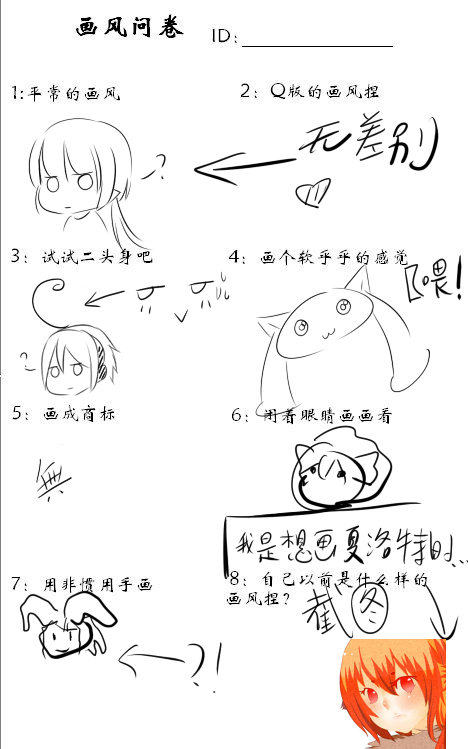 画风问卷 ID:
1:平常的画风
2：Q版的画风捏
?
无差别
3：试试二头身吧
4：画个软乎乎的感觉
喂！
?
5：画成商标
6：闭着眼睛画画看
無
我是想画夏洛特的...
7：用非惯用手画
8：自己以前是什么样的
画风捏？
截图
?!